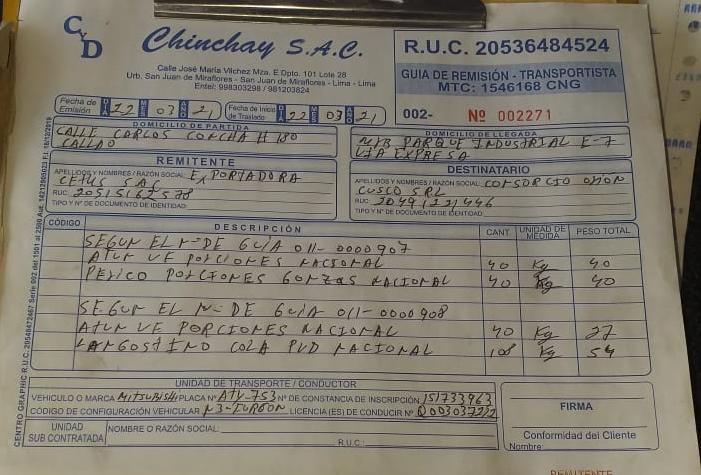 CyD
Chinchay S.A.C.
Calle José María Vilchez Mza. E Dpto. 101 Lote 28
Urb. San Juan de Miraflores - San Juan de Miraflores - Lima - Lima
Entel: 998303298 / 981203824
R.U.C. 20536484524
GUIA DE REMISIÓN - TRANSPORTISTA
MTC: 1546168 CNG
002- Nº 002271
Fecha de Emisión DIA 22 MES 03 AÑO 21 Fecha de Inicio de Traslado DIA 22 MES 03 AÑO 21
DOMICILIO DE PARTIDA
CALLE CARLOS CONCHA # 180
CALLAO
DOMICILIO DE LLEGADA
PARQUE INDUSTRIAL E-7
VIA EXPRESA
REMITENTE
APELLIDOS Y NOMBRES / RAZÓN SOCIAL EXPORTADORA
CETUS SAC
RUC: 20515162578
TIPO Y Nº DE DOCUMENTO DE IDENTIDAD:
DESTINATARIO
APELLIDOS Y NOMBRES / RAZÓN SOCIAL CONSORCIO
CUSCO SRL
RUC:
TIPO Y Nº DE DOCUMENTO DE IDENTIDAD:
CÓDIGO DESCRIPCIÓN CANT. UNIDAD DE MEDIDA PESO TOTAL
SEGUN EL Nº DE GUIA 011-0000907
ATUN VF PORCIONES NACIONAL 40 Kg 40
PERICO PORCIONES GONZAS NACIONAL 40 Kg 40
SEGUN EL Nº DE GUIA 011-0000908
ATUN VF PORCIONES NACIONAL 40 Kg 27
LANGOSTINO COLA PVD NACIONAL 108 Kg 54
UNIDAD DE TRANSPORTE / CONDUCTOR
VEHICULO O MARCA MITSUBISHI PLACA Nº ATV-753 Nº DE CONSTANCIA DE INSCRIPCIÓN 151733963
CÓDIGO DE CONFIGURACIÓN VEHICULAR N3-FURGON LICENCIA (ES) DE CONDUCIR Nº
UNIDAD SUB CONTRATADA
NOMBRE O RAZÓN SOCIAL:
R.U.C.:
FIRMA
Conformidad del Cliente
Nombre:
REMITENTE